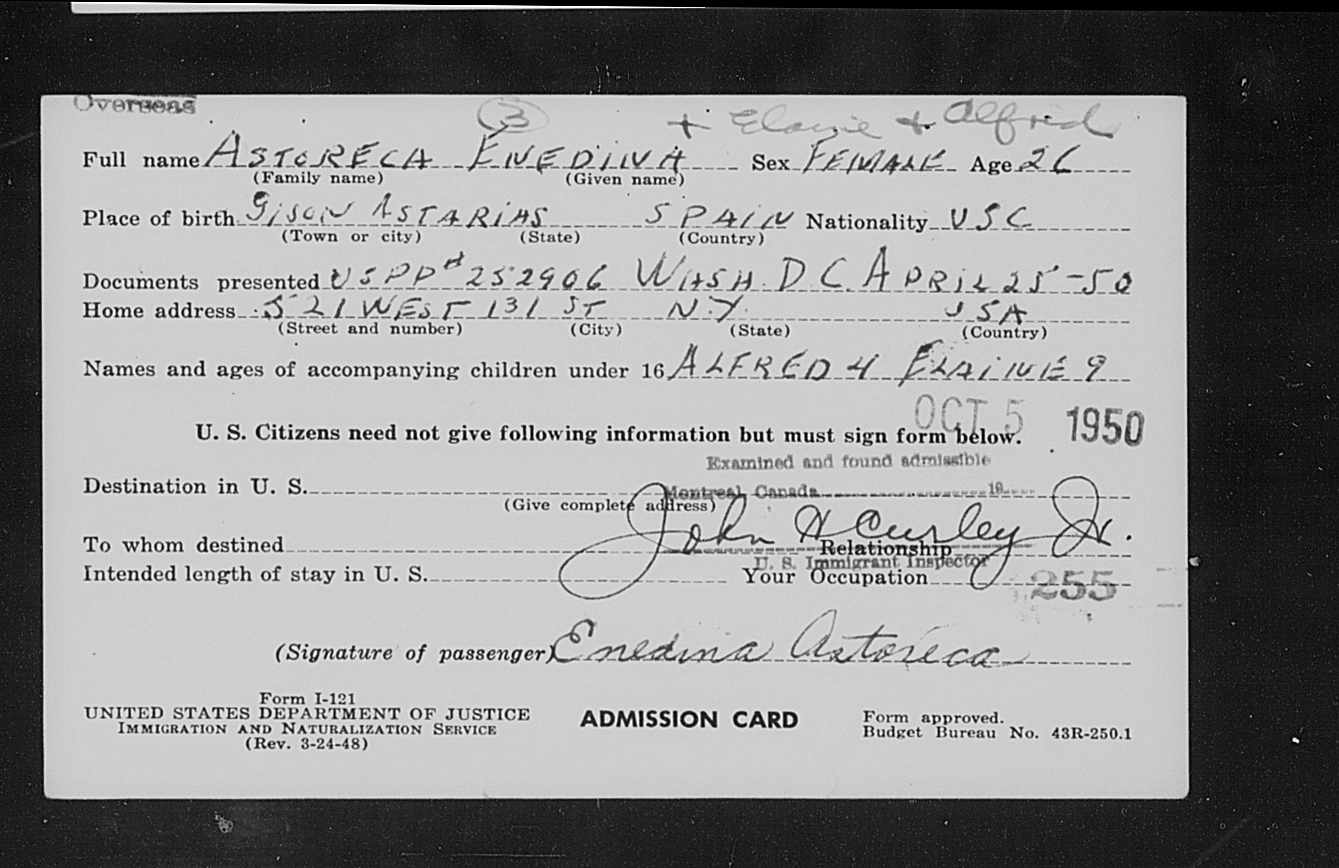 Overseas
(3) + Elaine + Alfred
Full name ASTORECA ENEDINA Sex FEMALE Age 26
(Family name) (Given name)
Place of birth GISON ASTARIAS SPAIN Nationality USC
(Town or city) (State) (Country)
Documents presented USPP# 252906 WASH. D.C. APRIL 25-50
Home address 521 WEST 131 ST N.Y. USA
(Street and number) (City) (State) (Country)
Names and ages of accompanying children under 16 ALFRED 4 ELAINE 9
OCT 5 1950
U. S. Citizens need not give following information but must sign form below.
Examined and found admissible
Destination in U. S. Montreal, Canada 19
(Give complete address)
John H Curley Jr.
To whom destined Relationship
U. S. Immigrant Inspector
Intended length of stay in U. S. Your Occupation 255
(Signature of passenger) Enedina Astoreca
Form I-121
UNITED STATES DEPARTMENT OF JUSTICE
IMMIGRATION AND NATURALIZATION SERVICE
(Rev. 3-24-48)
ADMISSION CARD
Form approved.
Budget Bureau No. 43R-250.1